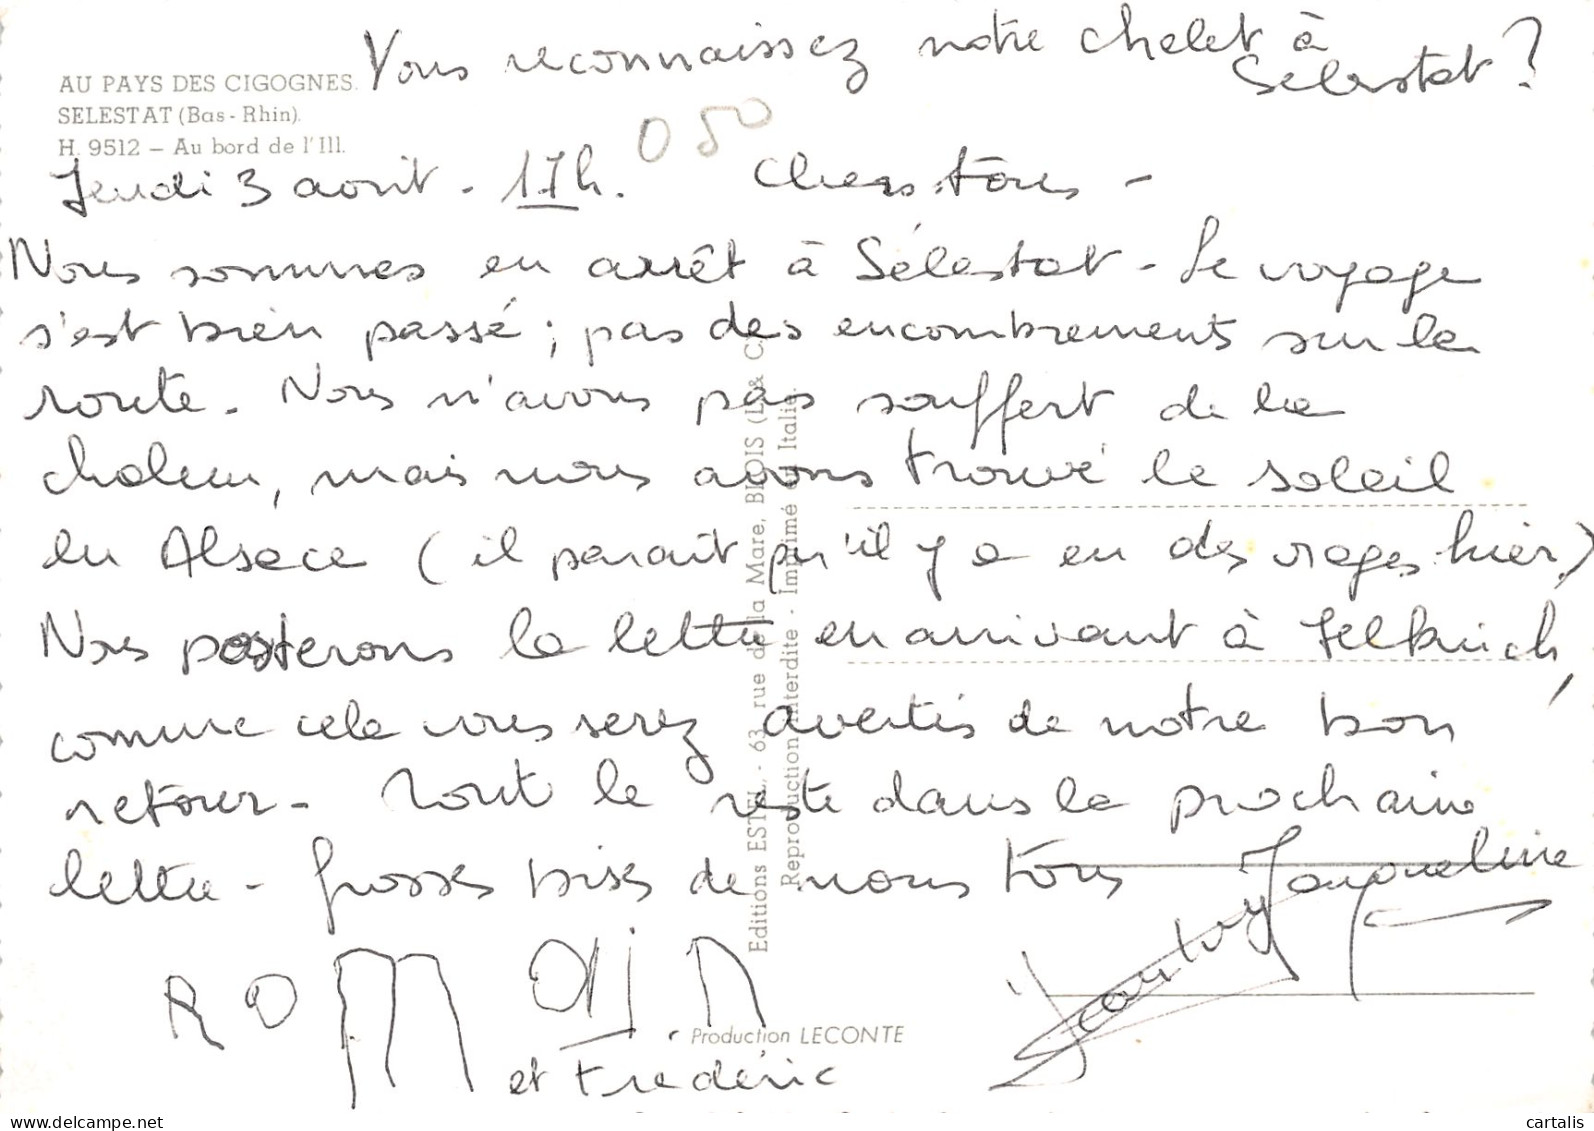 Vous reconnaissez notre chalet à
Sélestat ?
AU PAYS DES CIGOGNES.
SELESTAT (Bas-Rhin).
H. 9512 – Au bord de l'Ill.
050
Jeudi 3 août - 17h. Chers tous -
Nous sommes en arrêt à Sélestat - Le voyage
s'est bien passé ; pas des encombrements sur la
route. Nous n'avons pas souffert de la
chaleur, mais nous avons trouvé le soleil
en Alsace (il parait qu'il y a eu des orages hier)
Nous posterons la lettre en arrivant à
comme cela vous serez avertis de notre bon
retour - Tout le reste dans la prochaine
lettre - Grosses bises de nous tous Jacqueline
ROMAIN
et Frédéric
Editions ESTEL, - 63, rue de la Mare, BLOIS (L. & C.)
Reproduction interdite - Imprimé en Italie.
Production LECONTE
cartalis
www.delcampe.net